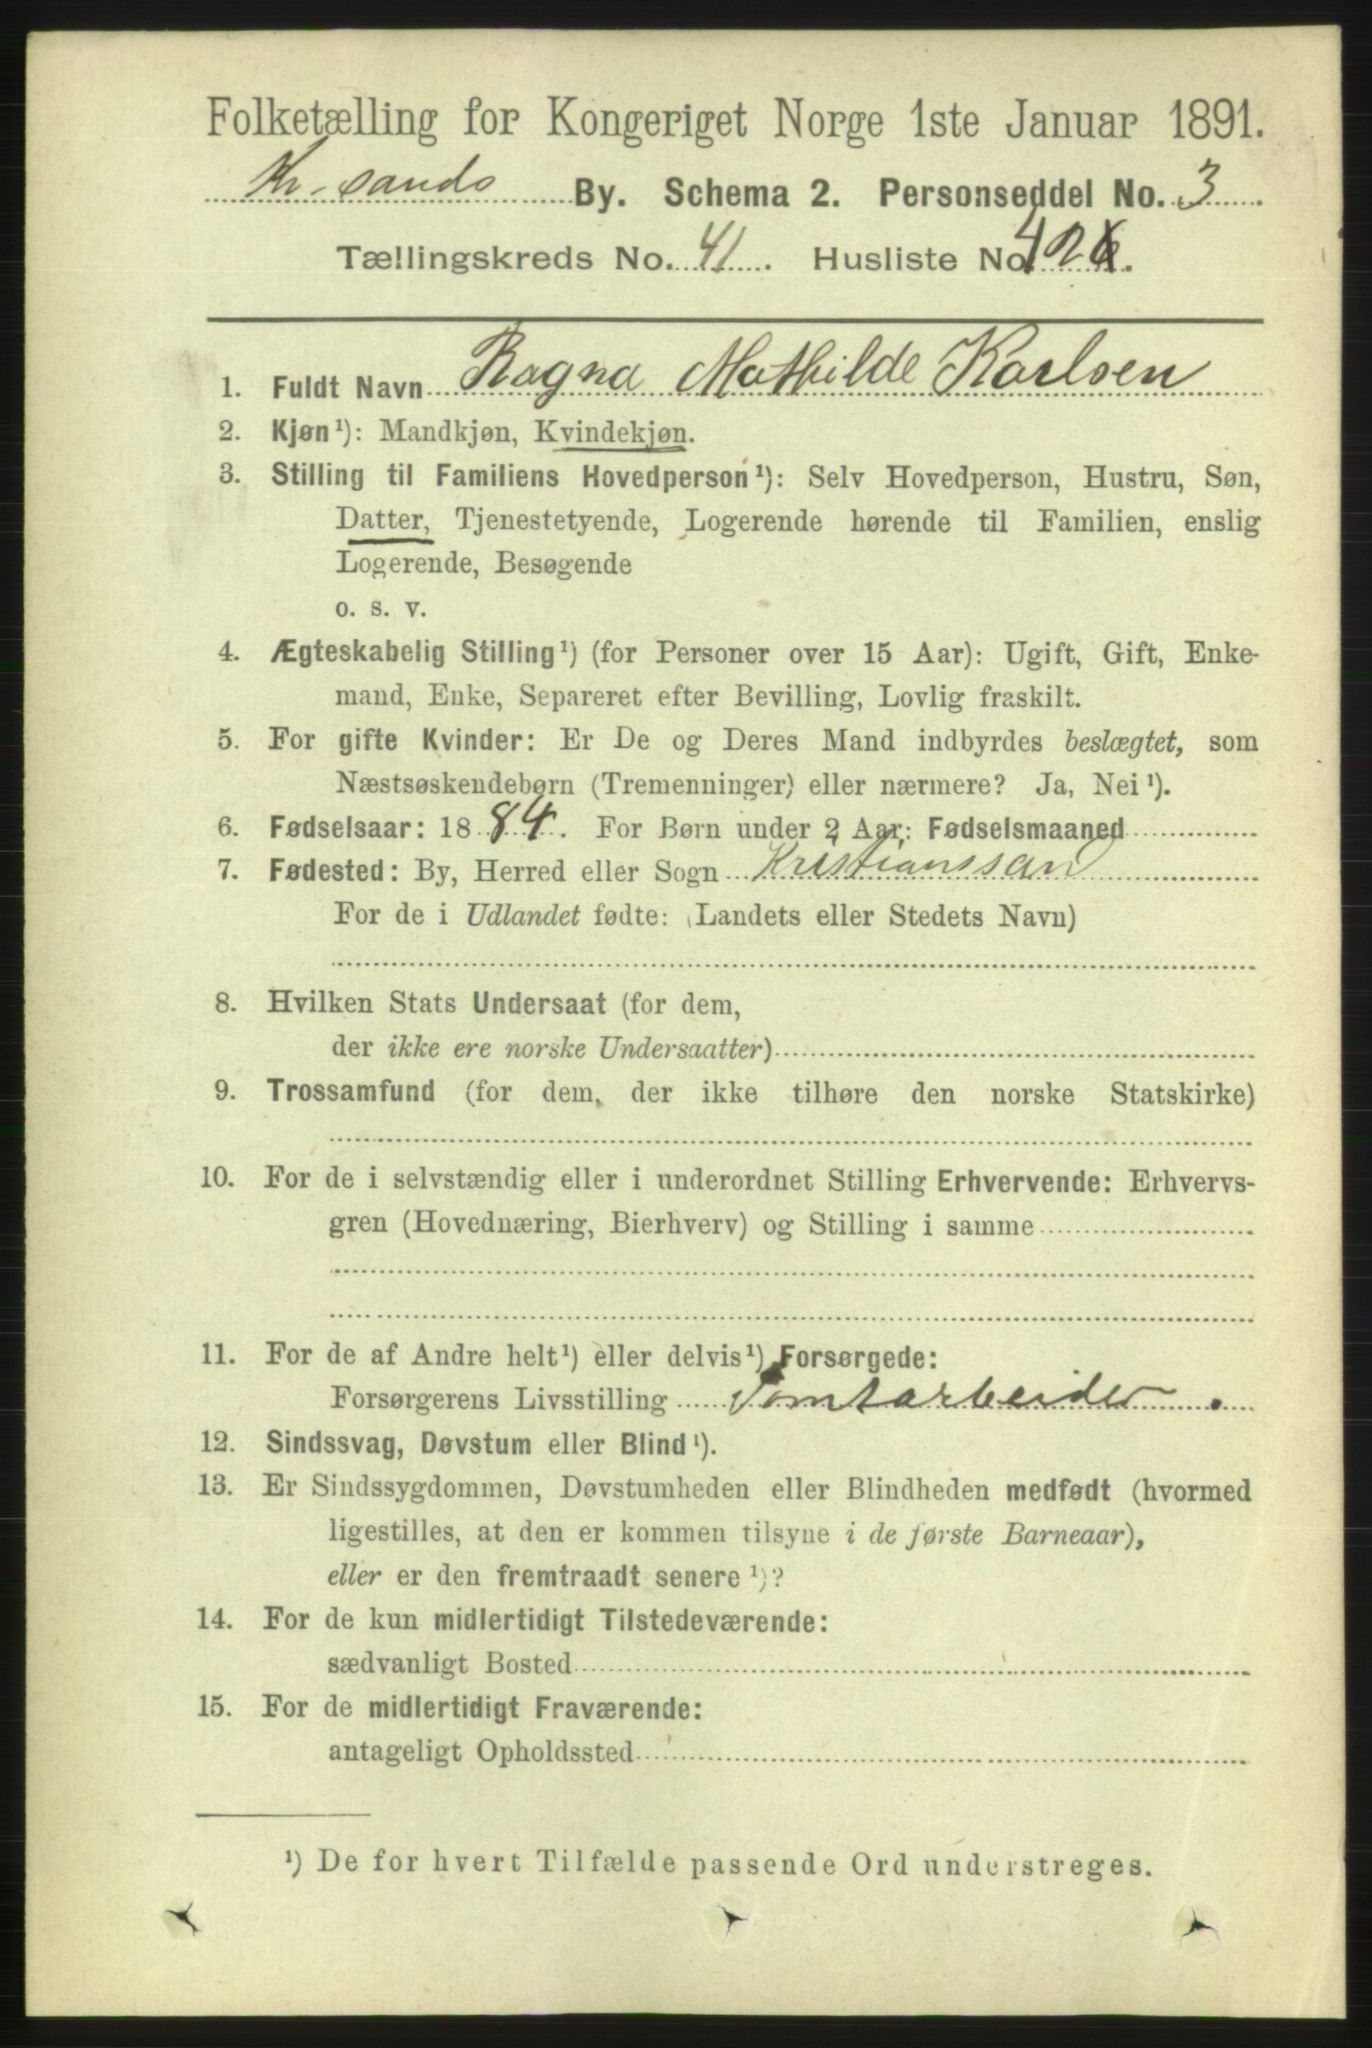 Folketælling for Kongeriget Norge 1ste Januar 1891.
Kr.sands By. Schema 2. Personseddel No. 3
Tællingskreds No. 41. Husliste No.
1. Fuldt Navn Ragna Mathilde Karlsen
2. Kjøn¹): Mandkjøn, Kvindekjøn.
3. Stilling til Familiens Hovedperson¹): Selv Hovedperson, Hustru, Søn,
Datter, Tjenestetyende, Logerende hørende til Familien, enslig
Logerende, Besøgende
o. s. v.
4. Ægteskabelig Stilling¹) (for Personer over 15 Aar): Ugift, Gift, Enke-
mand, Enke, Separeret efter Bevilling, Lovlig fraskilt.
5. For gifte Kvinder: Er De og Deres Mand indbyrdes beslægtet, som
Næstsøskendebørn (Tremenninger) eller nærmere? Ja, Nei¹).
6. Fødselsaar: 1884. For Børn under 2 Aar: Fødselsmaaned
7. Fødested: By, Herred eller Sogn Kristianssand
For de i Udlandet fødte: (Landets eller Stedets Navn)
8. Hvilken Stats Undersaat (for dem,
der ikke ere norske Undersaatter)
9. Trossamfund (for dem, der ikke tilhøre den norske Statskirke)
10. For de i selvstændig eller i underordnet Stilling Erhvervende: Erhvervs-
gren (Hovednæring, Bierhverv) og Stilling i samme
11. For de af Andre helt¹) eller delvis¹) Forsørgede:
Forsørgerens Livsstilling Tomtarbeider.
12. Sindssvag, Døvstum eller Blind¹).
13. Er Sindssygdommen, Døvstumheden eller Blindheden medfødt (hvormed
ligestilles, at den er kommen tilsyne i de første Barneaar),
eller er den fremtraadt senere¹)?
14. For de kun midlertidigt Tilstedeværende:
sædvanligt Bosted
15. For de midlertidigt Fraværende:
antageligt Opholdssted
¹) De for hvert Tilfælde passende Ord understreges.